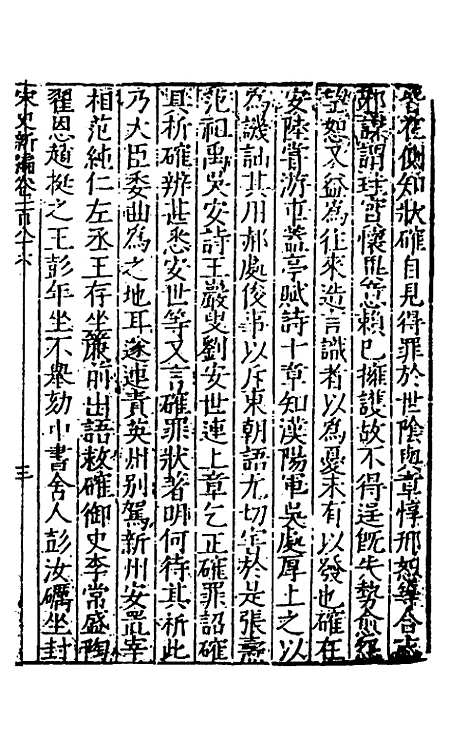 皆在側知狀確自見得罪於世陰與章惇邢恕等合志
邪謀謂珪實懷異意賴已擁護故不得逞既失勢愈怨
望恕又益為往來造言識者以為憂未有以發也確在
安陸嘗游車蓋亭賦詩十章知漢陽軍吳處厚上之以
為譏訕其用郝處俊事以斥東朝語尤切害於是張燾
范祖禹吳安詩王巖叟劉安世連上章乞正確罪詔確
具析確辨甚悉安世等又言確罪狀著明何待其析此
乃大臣委曲為之地耳遂連責英州別駕新州安置宰
相范純仁左丞王存坐簾前出語救確御史李常盛陶
翟恩趙挺之王彭年坐不舉劾中書舍人彭汝礪坐封
宋史新編卷一百八十六
三